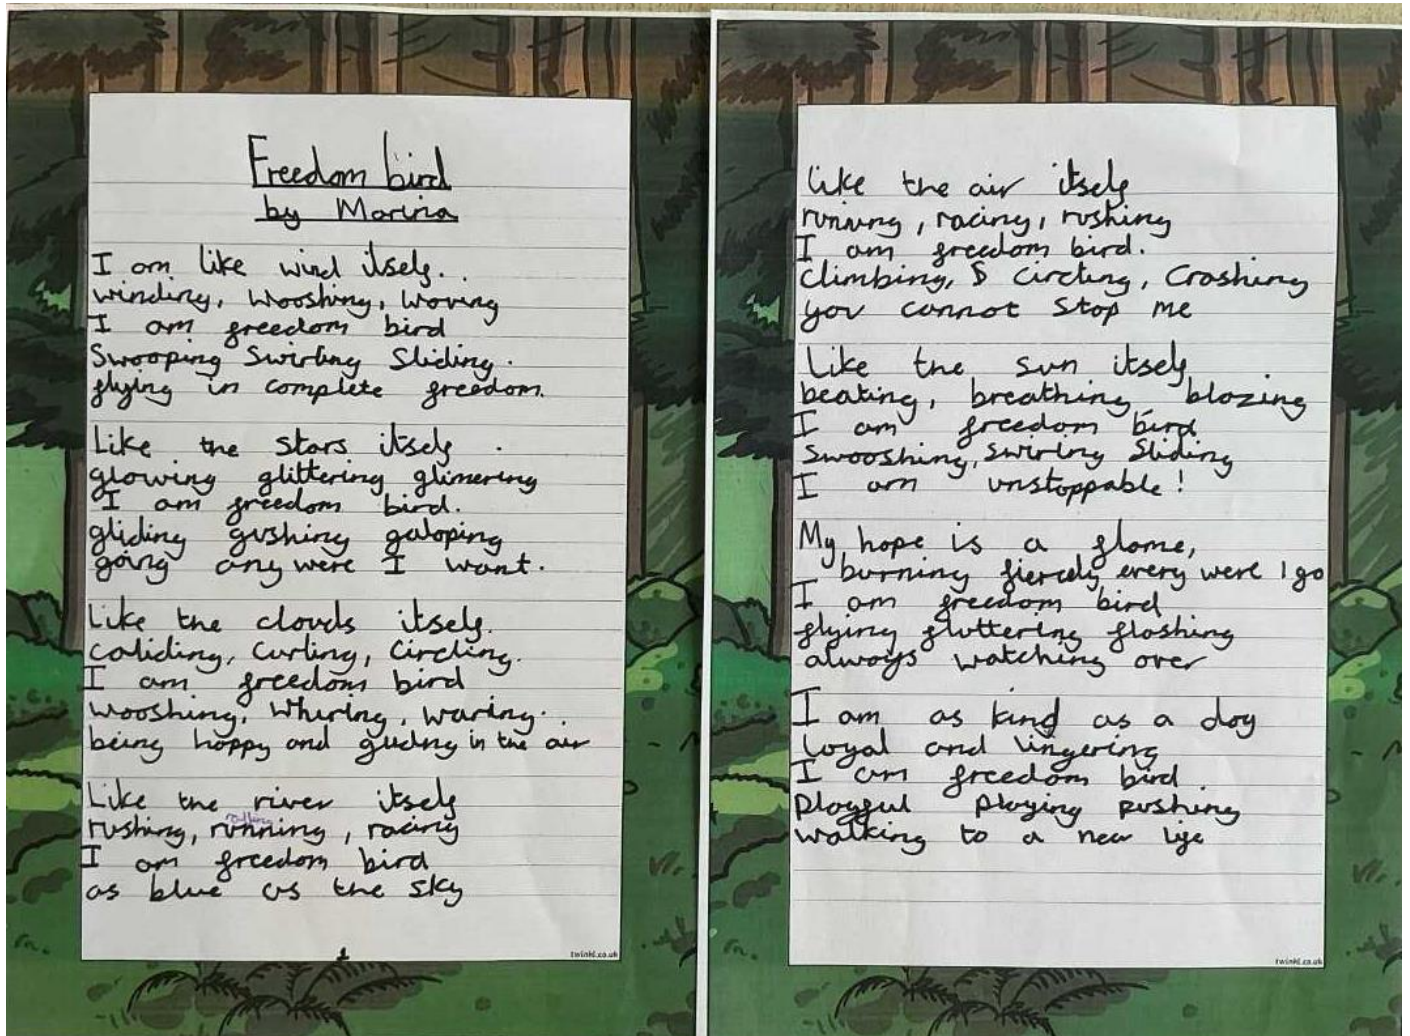 Freedom bird
by Marina
I am like wind itself.
winding, wooshing, waving
I am freedom bird
Swooping Swirling Sliding.
flying in complete freedom.
Like the stars itself
glowing glittering glimering
I am freedom bird.
gliding gushing galoping
going any were I want.
Like the clouds itself.
coliding, Curling, Circling.
I am freedom bird
wooshing, whiring, waring.
being happy and gliding in the air
Like the river itself
rolling
rushing, running, racing
I am freedom bird
as blue as the sky
twinkl.co.uk
like the air itself
running, racing, rushing
I am freedom bird.
Climbing, Circling, Crashing
you cannot stop me
Like the sun itself
beating, breathing blazing
I am freedom bird
swooshing, swirling Sliding
I am unstoppable!
My hope is a flame,
burning fiercely every were I go
I am freedom bird
flying fluttering flashing
always watching over
I am as kind as a dog
loyal and lingering
I am freedom bird
Playful playing pushing
walking to a new life
twinkl.co.uk